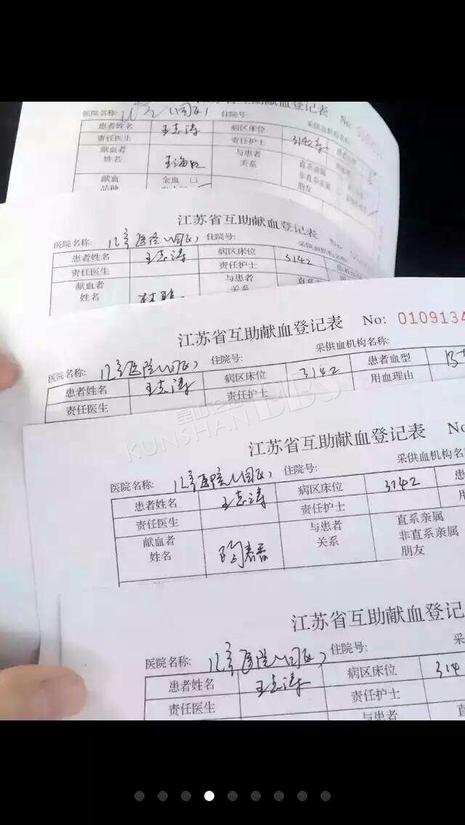 江苏省互助献血登记表 No:
医院名称: 住院号: 采供血机构名
患者姓名 王志涛 病区床位 3142
责任医生 责任护士 患者
献血者 姓名 与患者 关系 直系亲属
非直系亲属
朋友
献血 全血 □
江苏省互助献血登记表
医院名称: 儿童医院(园区) 住院号: 采供血机
患者姓名 王志涛 病区床位 3142
责任医生 责任护士
献血者 与患者
姓名 关系
江苏省互助献血登记表 No: 0109134
医院名称: 儿童医院(园区) 住院号: 采供血机构名称:
患者姓名 王志涛 病区床位 3142 患者血型 B
责任医生 责任护士 用血理由
KUNSHAN BBS
江苏省互助献血登记表 No:
医院名称: 儿童医院(园区) 住院号: 采供血机构名称:
患者姓名 王志涛 病区床位 3142 患
责任医生 责任护士 用
献血者 与患者 直系亲属
姓名 陶春春 关系 非直系亲属
朋友
江苏省互助献血登记
医院名称: 儿童医院(园区) 住院号: 采供
患者姓名 王志涛 病区床位 314
责任医生 责任护士